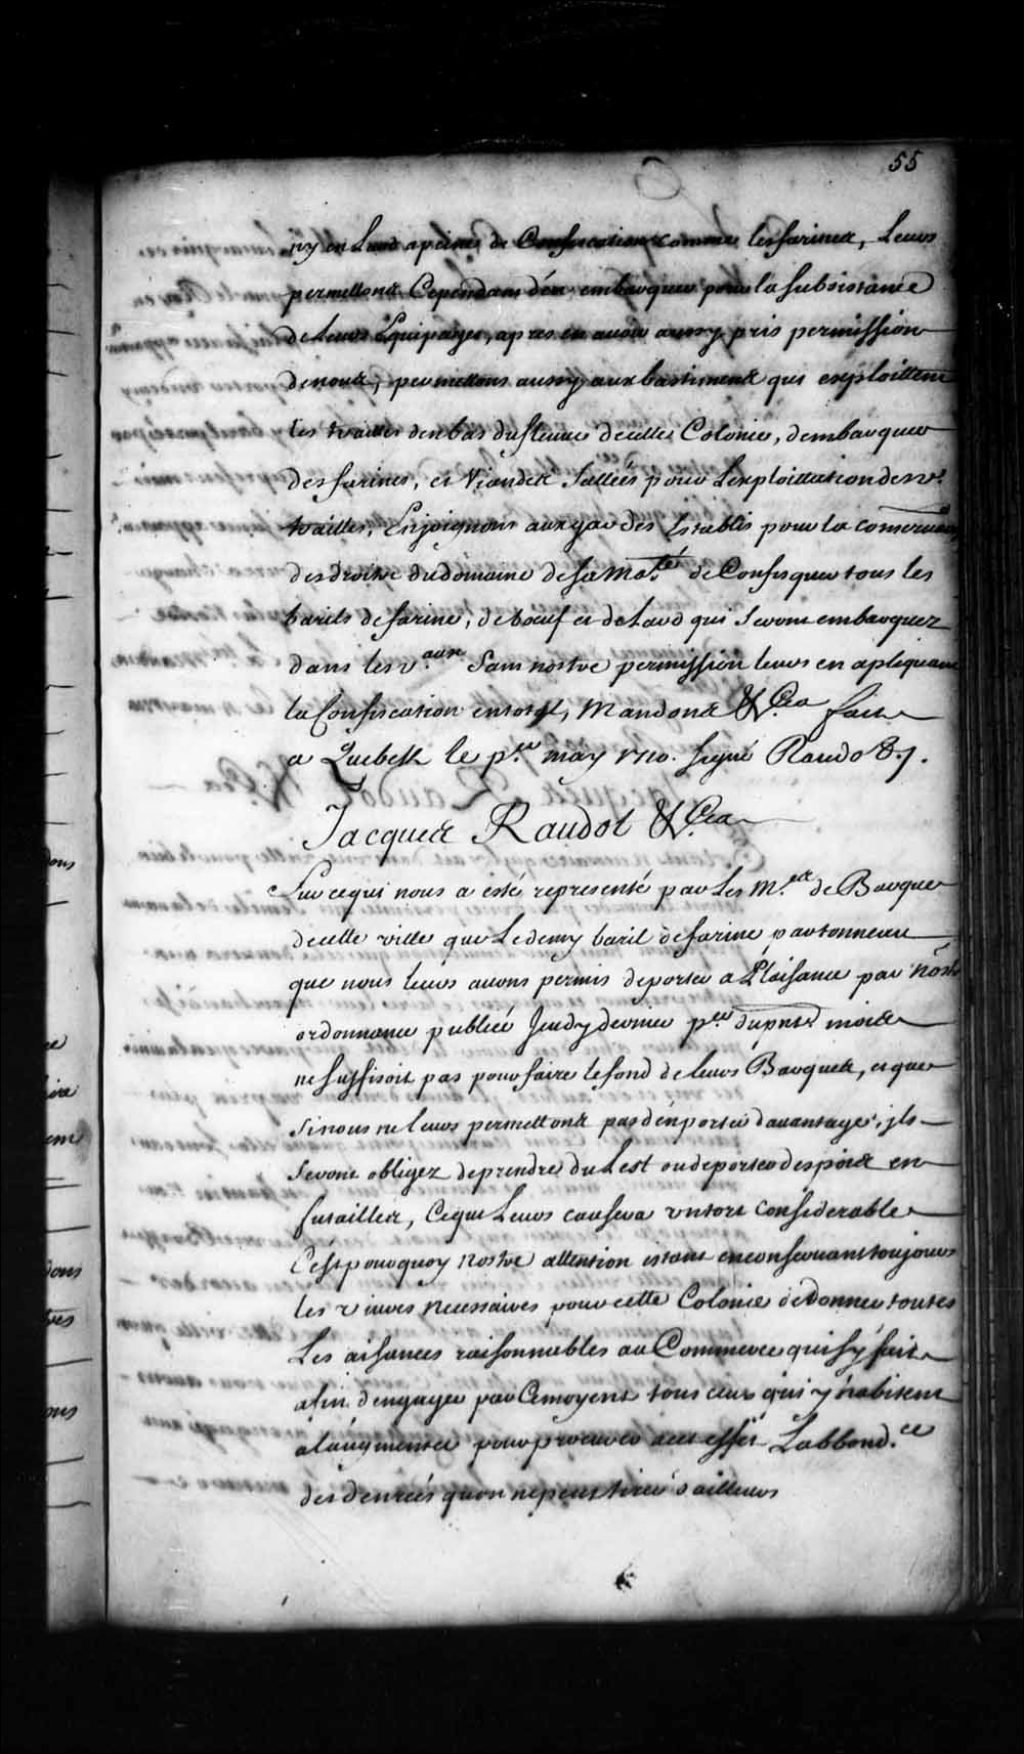 55
ny en Lard a peine de Confiscation comme les farines, Leurs
permettons Cependant d'en embarquer pour la subsistance
de Leurs Equipages, apres en avoir aussy pris permission
de nous, permettons aussy aux bastiments qui exploittent
les traittes den bas du fleuve de cette Colonie, dembarquer
des farines, et Viandes Sallées pour Lexploittation desd.
traittes, Enjoignons aux gardes Establis pour la conservaon
des droits du domaine de sa Ma.té de Confisquer tous les
barils de farine, de boeuf et de Lard qui seront embarquez
dans les v.aux Sans nostre permission leurs en apliquant
la Confiscation Mandons &.Ca fait
a Quebek le p.er may 1710. signé Raudot &.
Jacques Raudot &.Ca
Sur ce qui nous a esté representé par Les M.es de Barque
de cette ville que Le demy baril de farine par tonneau
que nous leurs avons permis de porter a Plaisance par nostre
ordonnance publiée Jeudy dernier p.er du pnt mois
ne suffisoit pas pour faire le fond de leurs Barques, et que
si nous ne leurs permettons pas d'en porter davantage, jls
seront obligez de prendre du Lest ou de porter des pois en
futailles, Ce qui Leurs causera un tort considerable
C'est pourquoy Nostre attention estant en conservant toujours
les vivres necessaires pour cette Colonie de donner toutes
Les aisances raisonnables au Commerce qui s'y fait
afin d'engager par Ce moyens tous ceux qui y habitent
a laugmenter pour procurer Labbond.ce
des denrées quon ne peut tirer d'ailleurs